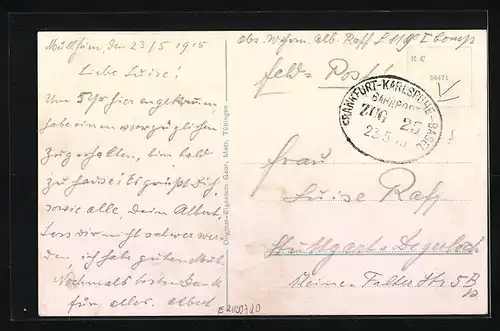 Müllheim, den 23/5 1915
Liebe Luise!
Um 5 Uhr hier angekommen,
habe einen vorzüglichen
Zug erhalten, bin bald
zu Hause! Es grüßt Dich
sowie alle, Dein Albert,
dir nicht schwer wer-
den ich habe guten Mut
Nochmals besten Dank
für alles. Albert
Original-Eigentum Gebr. Metz, Tübingen
Abs. Alb. Raff
Feld-Post
FRANKFURT-KARLSRUHE-BASEL
BAHNPOST
ZUG 26
23.5.15
Frau
Luise Raff
Stuttgart-Degerloch
Kleine Falter Str 5B